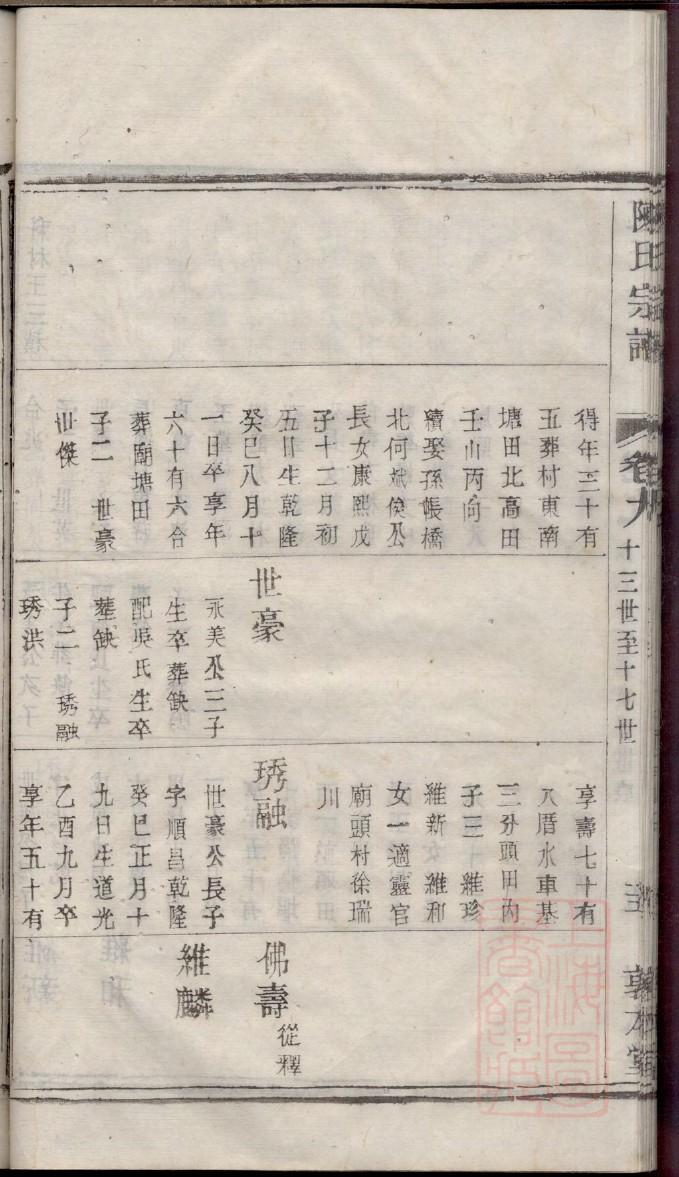 陳氏宗譜
卷九
十三世至十七世
敦本堂
得年三十有
五葬村東南
塘田北高田
壬山丙向
續娶孫帳橋
北何斌侯公
長女康熙戊
子十二月初
五日生乾隆
癸巳八月十
一日卒享年
六十有六合
葬廟塘田
子二 世豪
世傑
世豪
永美公三子
生卒葬缺
配吳氏生卒
葬缺
子二 琇融
琇洪
享壽七十有
八厝水車基
三分頭田內
子三 維珍
維新 維和
女一適靈官
廟頭村徐瑞
川
琇融
世豪公長子
字順昌乾隆
癸巳正月十
九日生道光
乙酉九月卒
享年五十有
佛壽 從釋
維麟